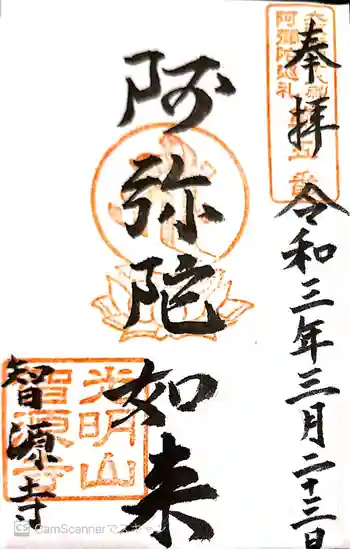 奉拝
令和三年三月二十三日
阿弥陀如来
智源寺
光明山
智源寺
CamScannerでスキャン